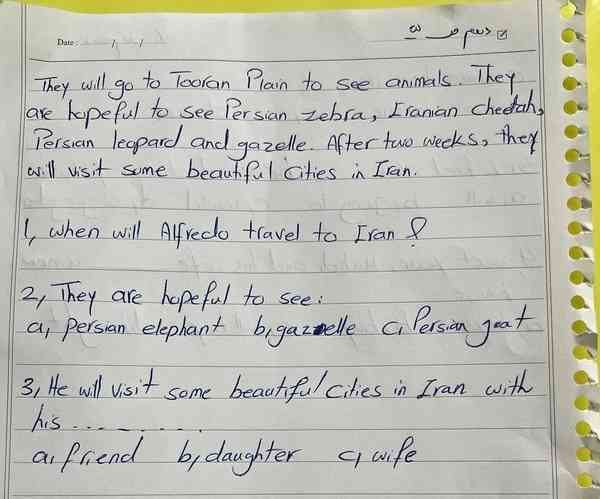 Date: / /
They will go to Tooran Plain to see animals. They
are hopeful to see Persian zebra, Iranian cheetah,
Persian leopard and gazelle. After two weeks, they
will visit some beautiful cities in Iran.
1, when will Alfredo travel to Iran?
2, They are hopeful to see:
a, persian elephant b, gazelle c, Persian goat
3, He will visit some beautiful cities in Iran with
his ..........
a, friend b, daughter c, wife